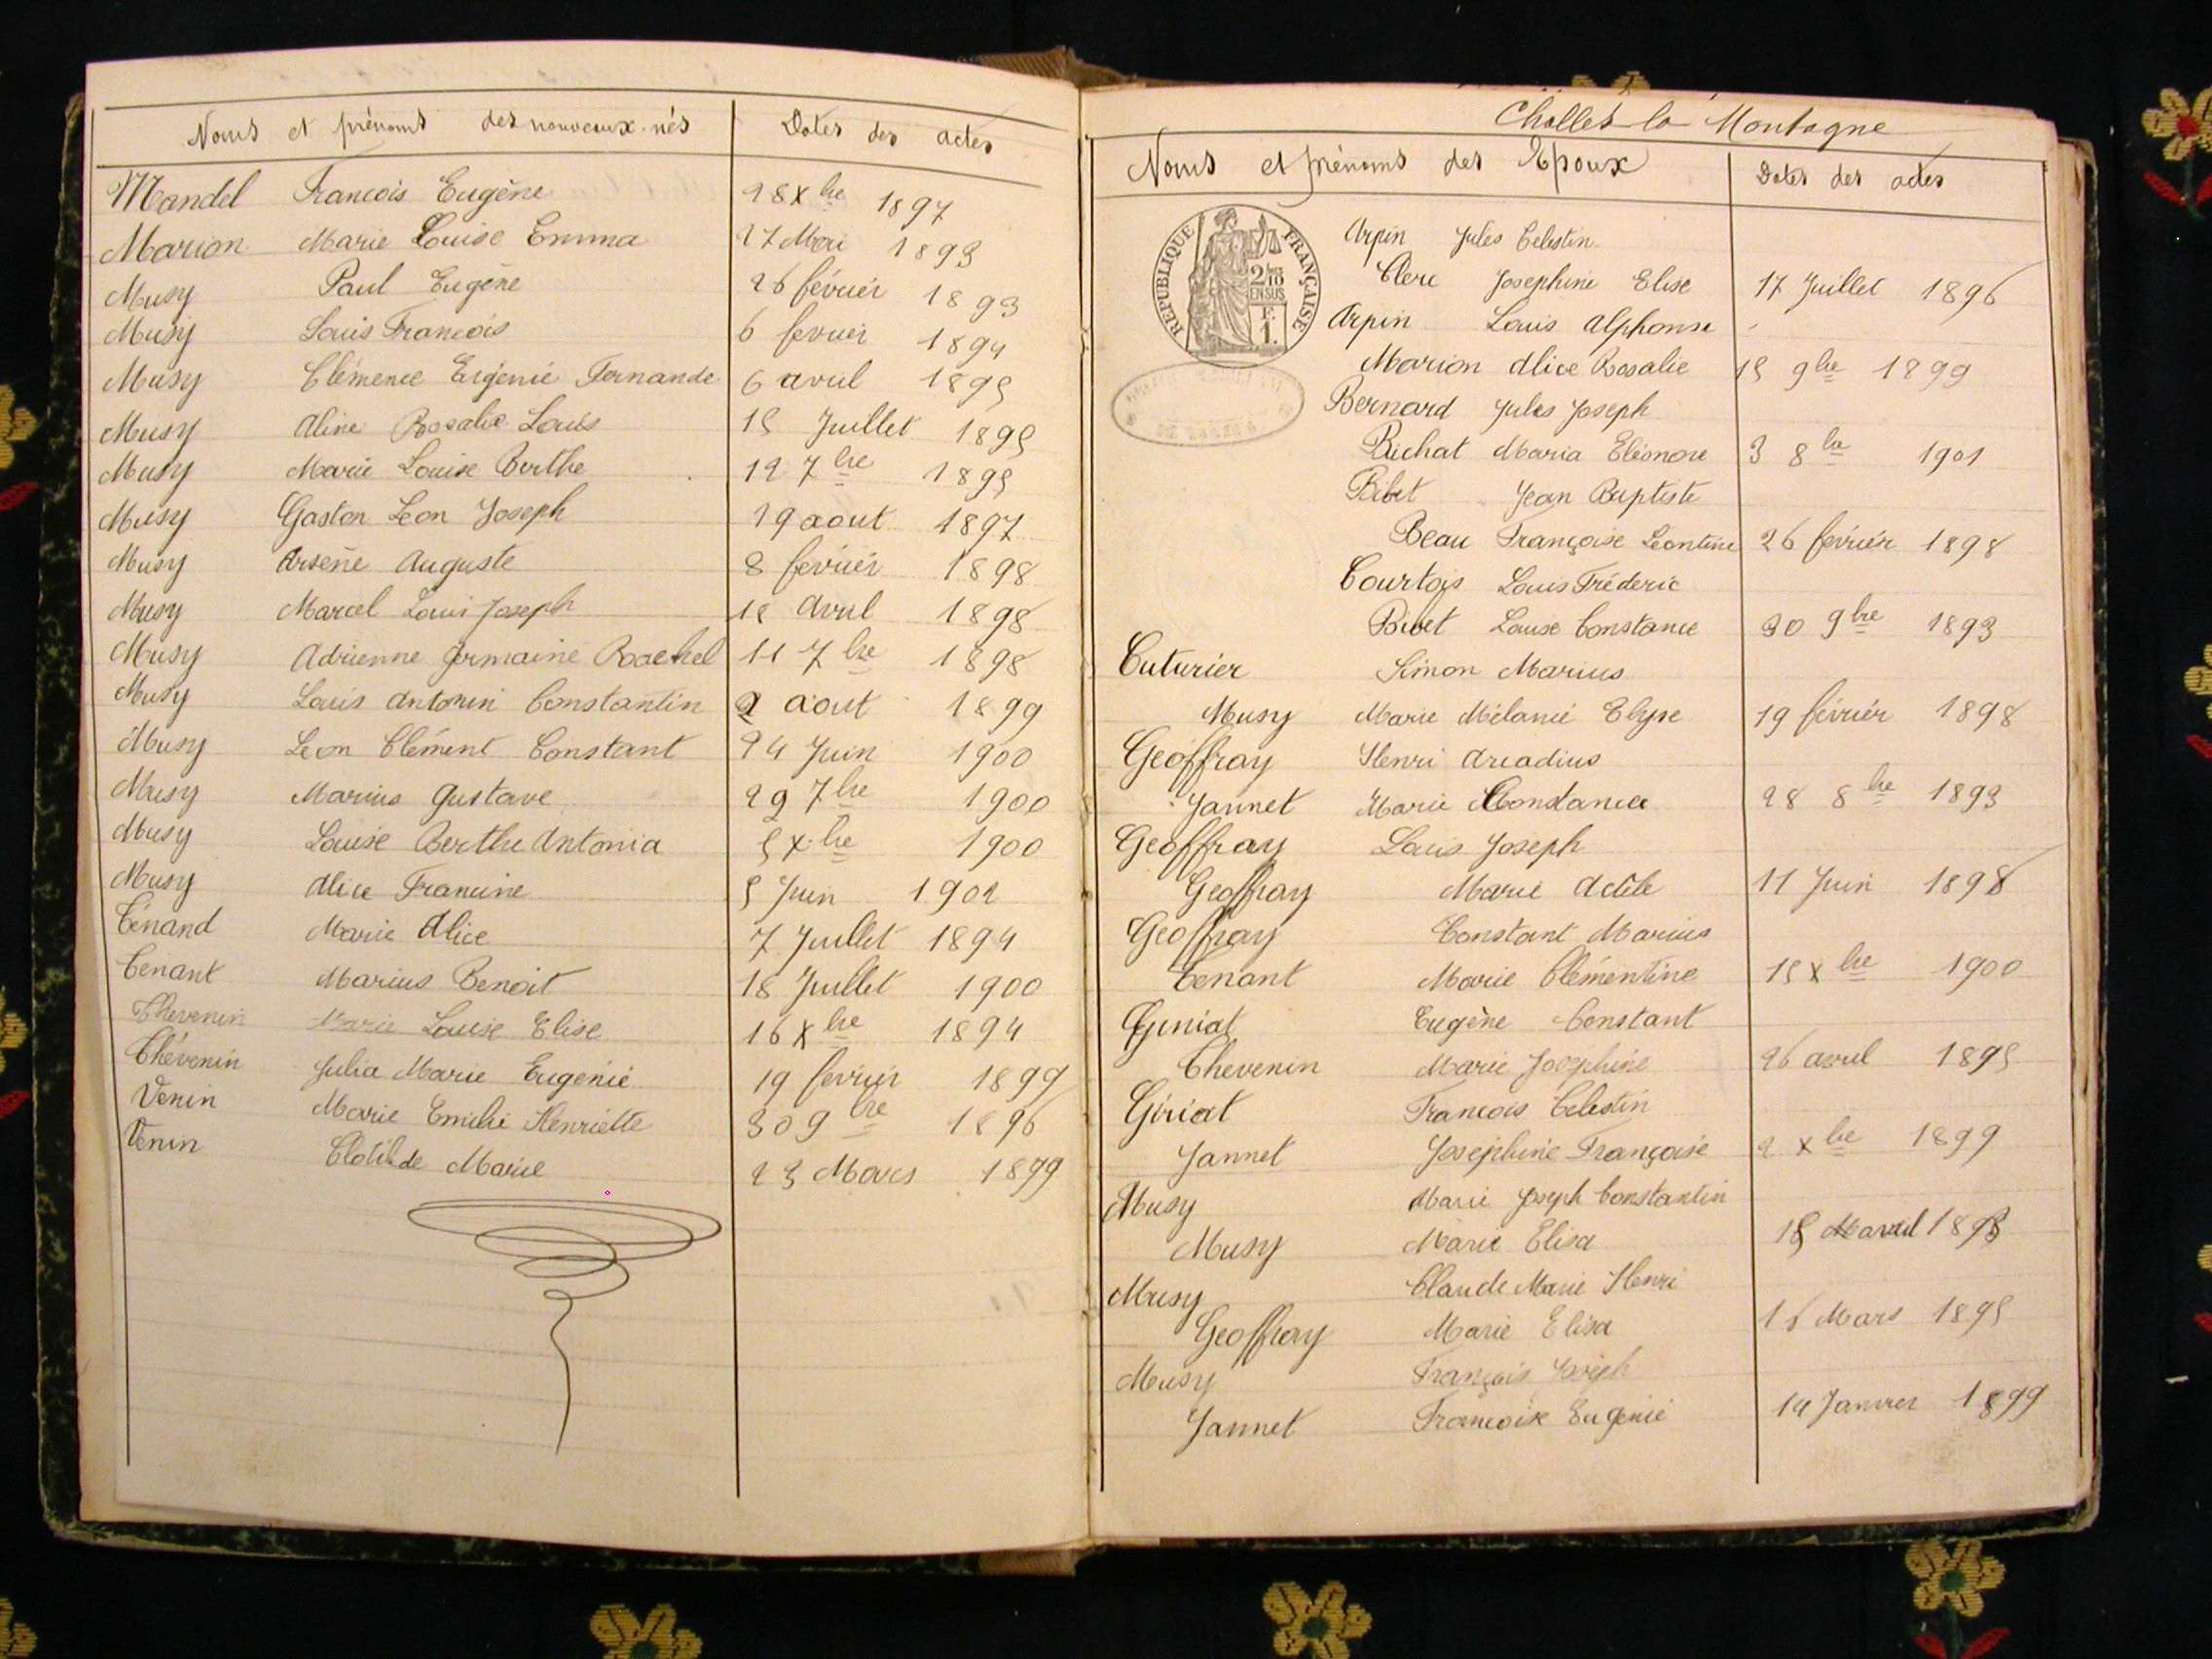 Noms et prénoms des nouveaux-nés Dates des actes
Mandel François Eugène 18 Xbre 1897
Marion Marie Louise Emma 27 Mai 1893
Musy Paul Eugène 26 février 1893
Musy Louis François 6 fevrier 1894
Musy Clémence Eugénie Fernande 6 avril 1895
Musy Aline Rosalie Louis 15 Juillet 1895
Musy Marie Louise Berthe 12 7bre 1895
Musy Gaston Leon Joseph 19 aout 1897
Musy Arsène Auguste 8 fevrier 1898
Musy Marcel Louis Joseph 18 Avril 1898
Musy Adrienne Germaine Rachel 11 7bre 1898
Musy Louis Antonin Constantin 2 aout 1899
Musy Leon Clément Constant 24 Juin 1900
Musy Marius Gustave 29 7bre 1900
Musy Louise Berthe Antonia 5 Xbre 1900
Musy Alice Francine 5 Juin 1902
Tenand Marie Alice 7 Juillet 1894
Tenant Marius Benoit 18 Juillet 1900
Thevenin Marie Louise Elise 16 Xbre 1894
Thévenin Julia Marie Eugenie 19 fevrier 1899
Venin Marie Emilie Henriette 30 9bre 1896
Venin Clotilde Marie 23 Mars 1899
Challes la Montagne
Noms et prénoms des Epoux Dates des actes
RÉPUBLIQUE FRANÇAISE
2/10 EN SUS
F. 1.
Arpin Jules Celestin
Clerc Josephine Elise 17 Juillet 1896
Arpin Louis Alphonse
Marion Alice Rosalie 15 9bre 1899
Bernard Jules Joseph
Buchat Maria Eléonore 3 8bre 1901
Bibet Jean Baptiste
Beau Françoise Leontine 26 février 1898
Courtois Louis Fréderic
Buet Louise Constance 30 9bre 1893
Cuturier Simon Marius
Musy Marie Mélanie Elyse 19 février 1898
Geoffray Henri Arcadius
Jannet Marie Constance 28 8bre 1893
Geoffray Louis Joseph
Geoffray Marie Adele 11 Juin 1898
Geoffray Constant Marius
Tenant Marie Clémentine 15 Xbre 1900
Geniat Eugène Constant
Thevenin Marie Josephine 26 avril 1895
Giriat François Celestin
Jannet Josephine Françoise 2 Xbre 1899
Musy Marie Joseph Constantin
Musy Marie Elisa 15 avril 1898
Musy Claude Marie Henri
Geoffray Marie Elisa 16 Mars 1895
Musy François Joseph
Jannet Francoise Eugenie 14 Janvier 1899